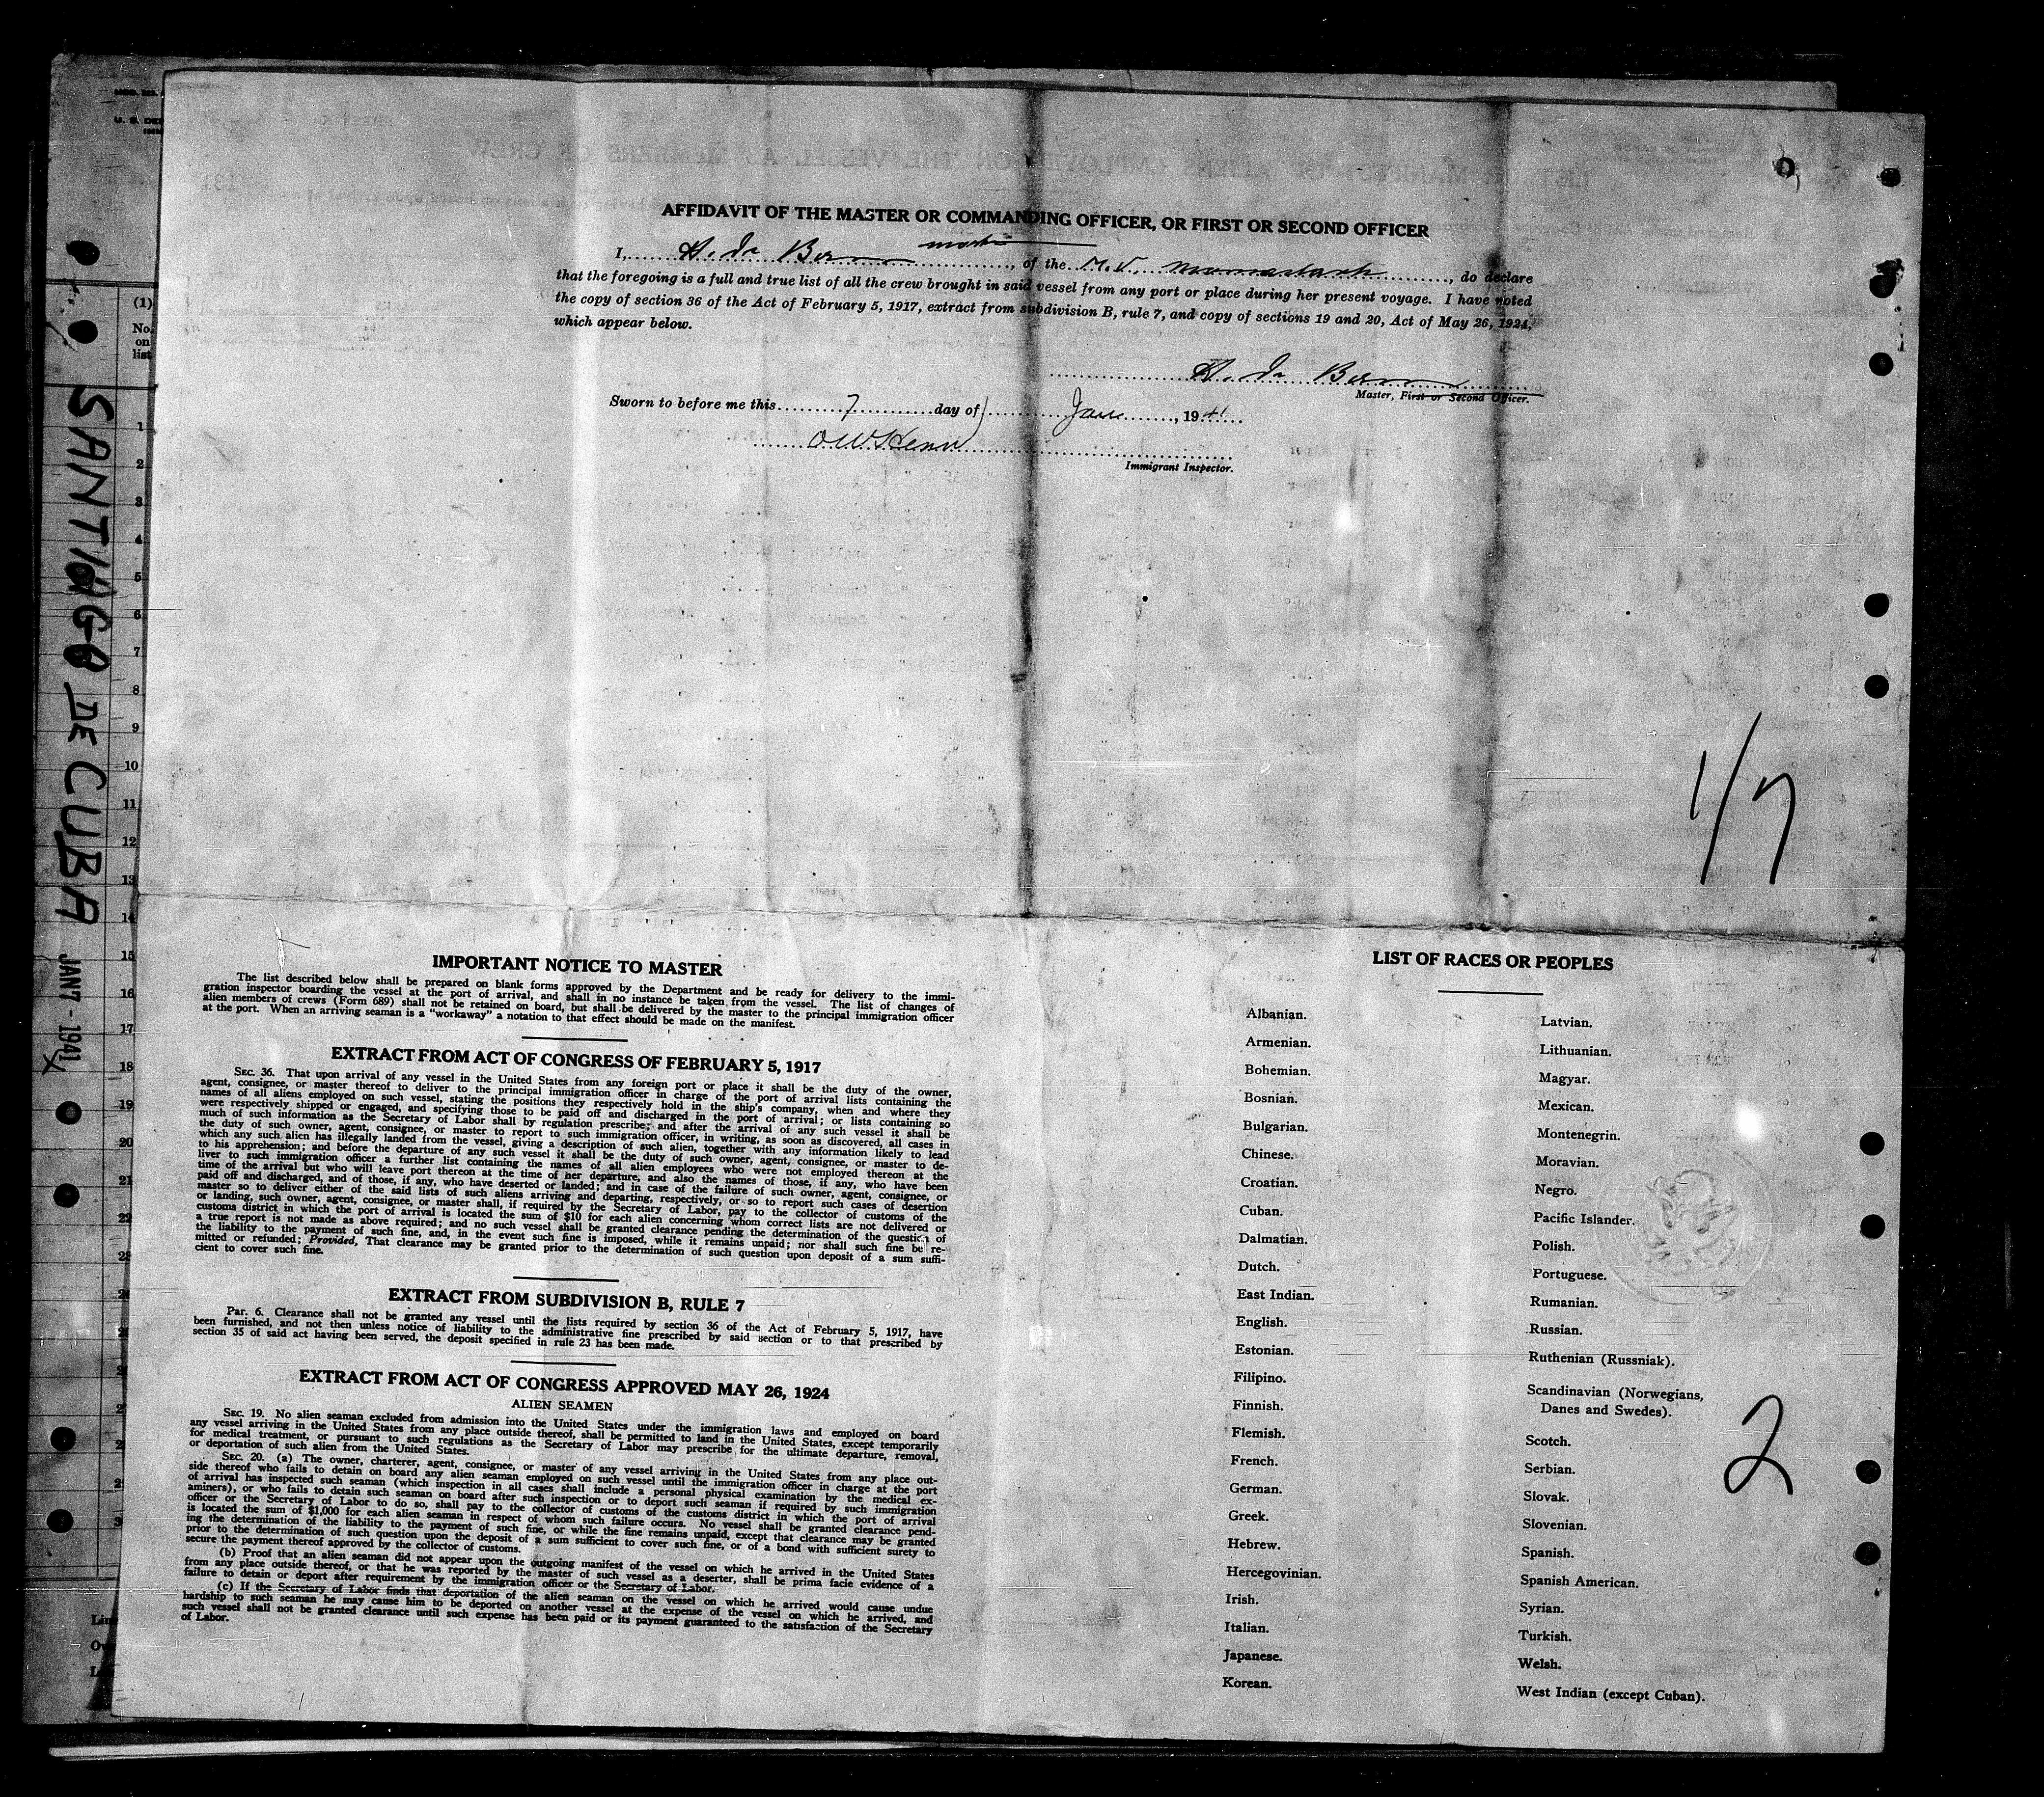 AFFIDAVIT OF THE MASTER OR COMMANDING OFFICER, OR FIRST OR SECOND OFFICER
I, , of the M.V. , do declare
that the foregoing is a full and true list of all the crew brought in said vessel from any port or place during her present voyage. I have noted
the copy of section 36 of the Act of February 5, 1917, extract from subdivision B, rule 7, and copy of sections 19 and 20, Act of May 26, 1924,
which appear below.
Master, First or Second Officer.
Sworn to before me this 7 day of Jan , 1941
Immigrant Inspector.
1/7
2
SANTIAGO DE CUBA JAN 7 - 1941
U. S. DE
(1)
No.
on
list
1
2
3
4
5
6
7
8
9
10
11
12
13
14
15
16
17
18
19
20
21
22
IMPORTANT NOTICE TO MASTER
The list described below shall be prepared on blank forms approved by the Department and be ready for delivery to the immi-
gration inspector boarding the vessel at the port of arrival, and shall in no instance be taken from the vessel. The list of changes of
alien members of crews (Form 689) shall not be retained on board, but shall be delivered by the master to the principal immigration officer
at the port. When an arriving seaman is a "workaway" a notation to that effect should be made on the manifest.
EXTRACT FROM ACT OF CONGRESS OF FEBRUARY 5, 1917
SEC. 36. That upon arrival of any vessel in the United States from any foreign port or place it shall be the duty of the owner,
agent, consignee, or master thereof to deliver to the principal immigration officer in charge of the port of arrival lists containing the
names of all aliens employed on such vessel, stating the positions they respectively hold in the ship's company, when and where they
were respectively shipped or engaged, and specifying those to be paid off and discharged in the port of arrival; or lists containing so
much of such information as the Secretary of Labor shall by regulation prescribe; and after the arrival of any such vessel it shall be
the duty of such owner, agent, consignee, or master to report to such immigration officer, in writing, as soon as discovered, all cases in
which any such alien has illegally landed from the vessel, giving a description of such alien, together with any information likely to lead
to his apprehension; and before the departure of any such vessel it shall be the duty of such owner, agent, consignee, or master to de-
liver to such immigration officer a further list containing the names of all alien employees who were not employed thereon at the
time of the arrival but who will leave port thereon at the time of her departure, and also the names of those, if any, who have been
paid off and discharged, and of those, if any, who have deserted or landed; and in case of the failure of such owner, agent, consignee, or
master so to deliver either of the said lists of such aliens arriving and departing, respectively, or so to report such cases of desertion
or landing, such owner, agent, consignee, or master shall, if required by the Secretary of Labor, pay to the collector of customs of the
customs district in which the port of arrival is located the sum of $10 for each alien concerning whom correct lists are not delivered or
a true report is not made as above required; and no such vessel shall be granted clearance pending the determination of the question of
the liability to the payment of such fine, and, in the event such fine is imposed, while it remains unpaid; nor shall such fine be re-
mitted or refunded; Provided, That clearance may be granted prior to the determination of such question upon deposit of a sum suffi-
cient to cover such fine.
EXTRACT FROM SUBDIVISION B, RULE 7
Par. 6. Clearance shall not be granted any vessel until the lists required by section 36 of the Act of February 5, 1917, have
been furnished, and not then unless notice of liability to the administrative fine prescribed by said section or to that prescribed by
section 35 of said act having been served, the deposit specified in rule 23 has been made.
EXTRACT FROM ACT OF CONGRESS APPROVED MAY 26, 1924
ALIEN SEAMEN
SEC. 19. No alien seaman excluded from admission into the United States under the immigration laws and employed on board
any vessel arriving in the United States from any place outside thereof, shall be permitted to land in the United States, except temporarily
for medical treatment, or pursuant to such regulations as the Secretary of Labor may prescribe for the ultimate departure, removal,
or deportation of such alien from the United States.
SEC. 20. (a) The owner, charterer, agent, consignee, or master of any vessel arriving in the United States from any place out-
side thereof who fails to detain on board any alien seaman employed on such vessel until the immigration officer in charge at the port
of arrival has inspected such seaman (which inspection in all cases shall include a personal physical examination by the medical ex-
aminers), or who fails to detain such seaman on board after such inspection or to deport such seaman if required by such immigration
officer or the Secretary of Labor to do so, shall pay to the collector of customs of the customs district in which the port of arrival
is located the sum of $1,000 for each alien seaman in respect of whom such failure occurs. No vessel shall be granted clearance pend-
ing the determination of the liability to the payment of such fine, or while the fine remains unpaid, except that clearance may be granted
prior to the determination of such question upon the deposit of a sum sufficient to cover such fine, or of a bond with sufficient surety to
secure the payment thereof approved by the collector of customs.
(b) Proof that an alien seaman did not appear upon the outgoing manifest of the vessel on which he arrived in the United States
from any place outside thereof, or that he was reported by the master of such vessel as a deserter, shall be prima facie evidence of a
failure to detain or deport after requirement by the immigration officer or the Secretary of Labor.
(c) If the Secretary of Labor finds that deportation of the alien seaman on the vessel on which he arrived would cause undue
hardship to such seaman he may cause him to be deported on another vessel at the expense of the vessel on which he arrived, and
such vessel shall not be granted clearance until such expense has been paid or its payment guaranteed to the satisfaction of the Secretary
of Labor.
LIST OF RACES OR PEOPLES
Albanian.
Armenian.
Bohemian.
Bosnian.
Bulgarian.
Chinese.
Croatian.
Cuban.
Dalmatian.
Dutch.
East Indian.
English.
Estonian.
Filipino.
Finnish.
Flemish.
French.
German.
Greek.
Hebrew.
Hercegovinian.
Irish.
Italian.
Japanese.
Korean.
Latvian.
Lithuanian.
Magyar.
Mexican.
Montenegrin.
Moravian.
Negro.
Pacific Islander.
Polish.
Portuguese.
Rumanian.
Russian.
Ruthenian (Russniak).
Scandinavian (Norwegians,
Danes and Swedes).
Scotch.
Serbian.
Slovak.
Slovenian.
Spanish.
Spanish American.
Syrian.
Turkish.
Welsh.
West Indian (except Cuban).